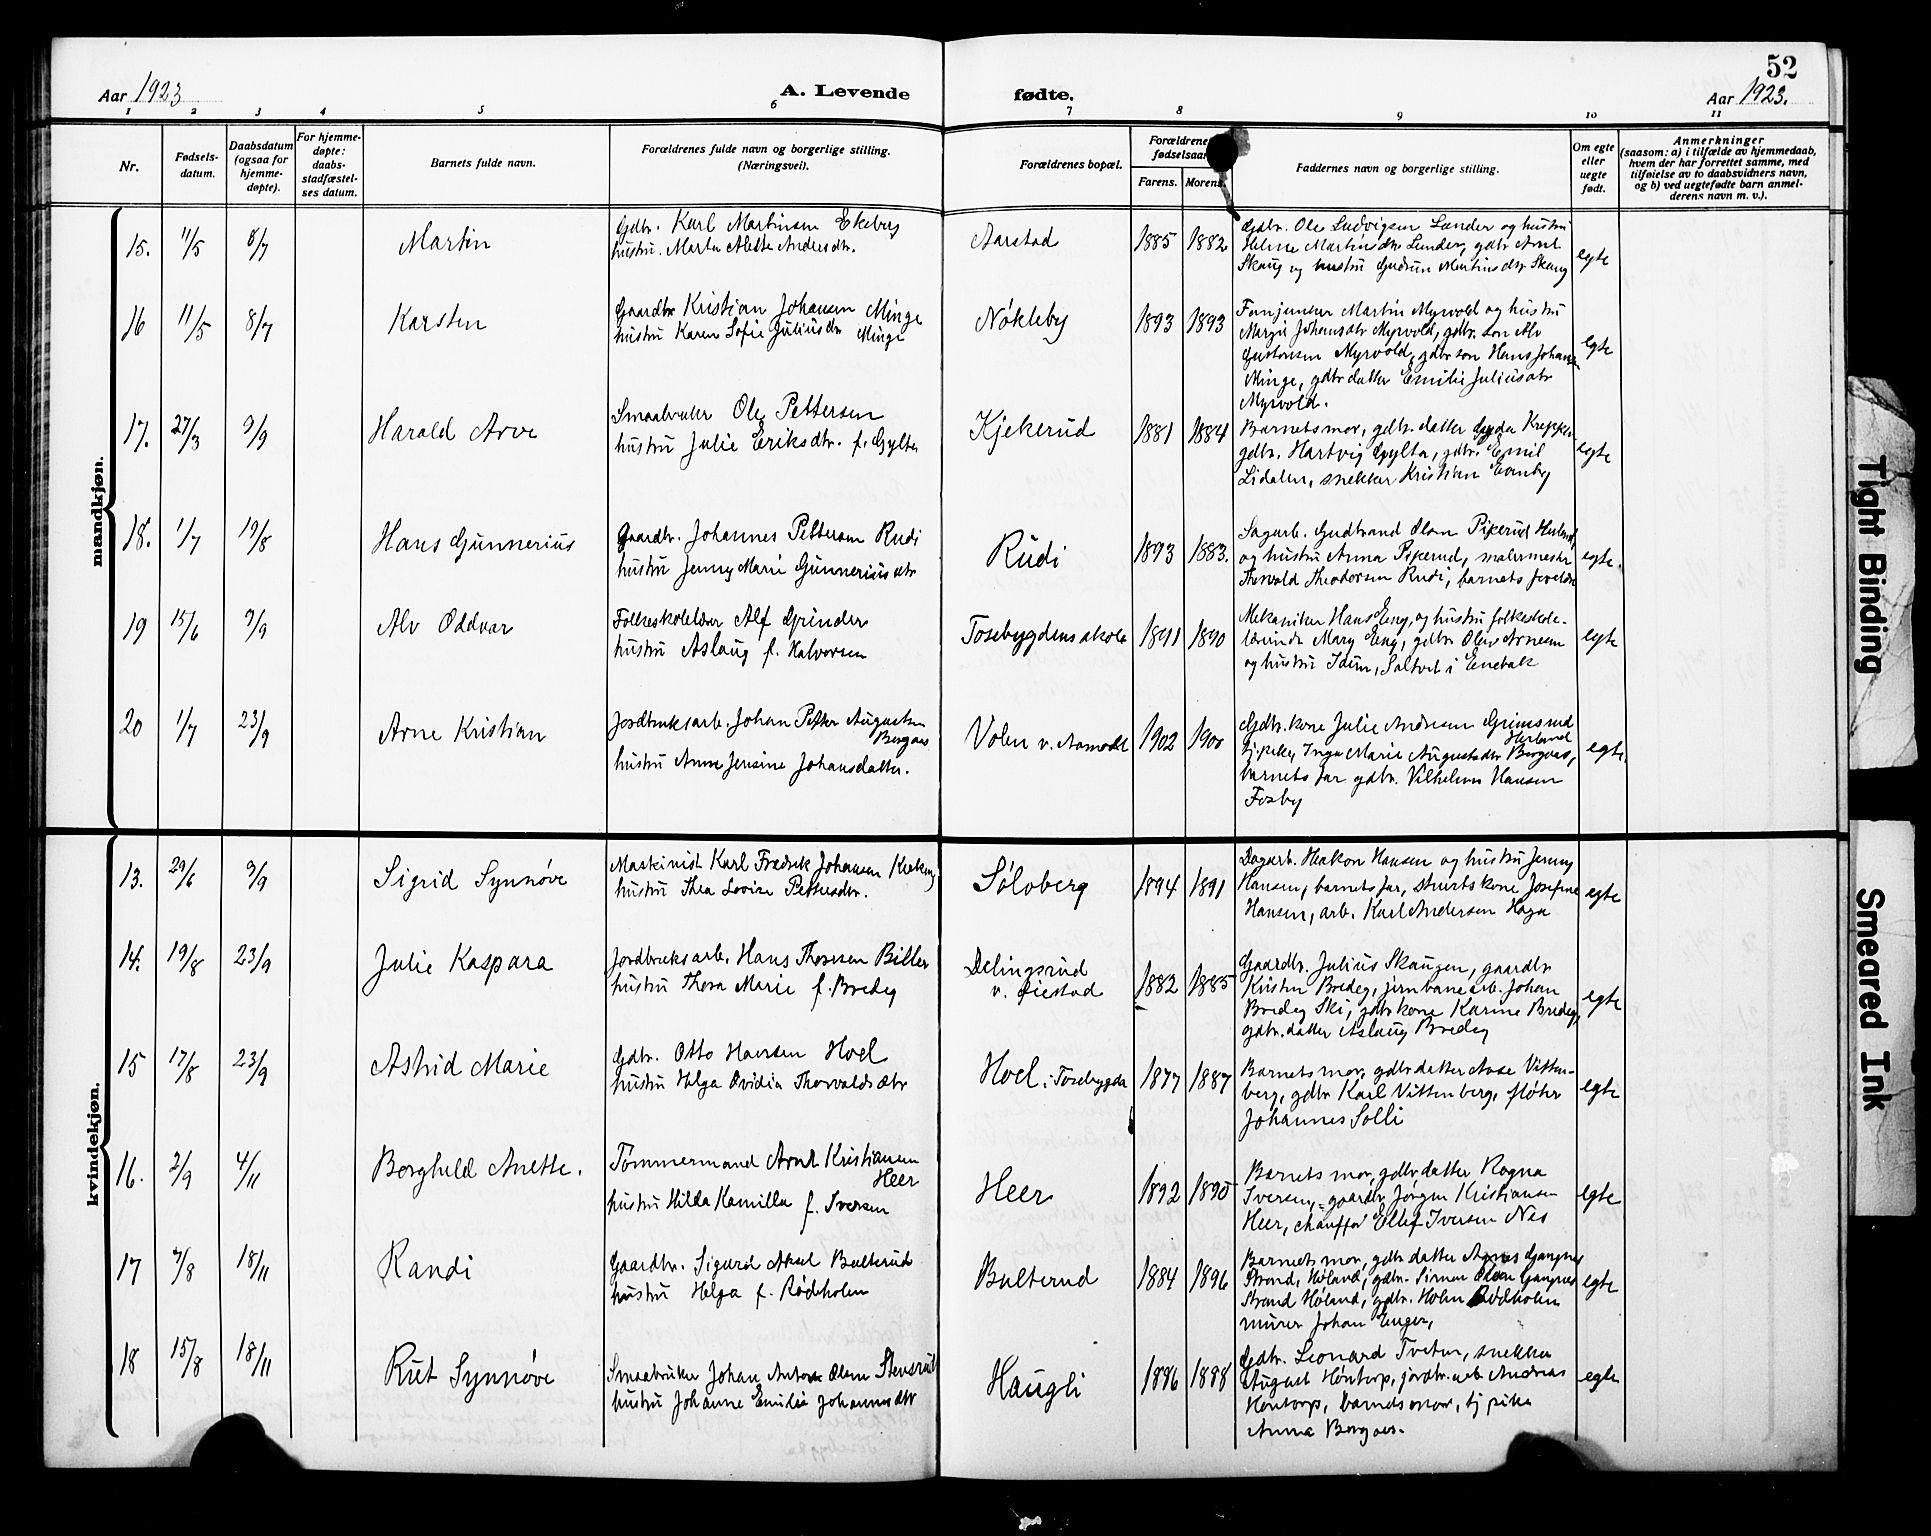 52
Aar 1923
A. Levende fødte.
Aar 1923.
1 2 3 4 5 6 7 8 9 10 11
Nr.
Fødsels-
datum.
Daabsdatum
(ogsaa for
hjemme-
døpte).
For hjemme-
døpte:
daabs-
stadfæstel-
ses datum.
Barnets fulde navn.
Forældrenes fulde navn og borgerlige stilling.
(Næringsvei).
Forældrenes bopæl.
Forældrenes
fødselsaar
Farens. Morens.
Faddernes navn og borgerlige stilling.
Om egte
eller
uegte
født.
Anmerkninger
(saasom: a) i tilfælde av hjemmedaab,
hvem der har forrettet samme, med
tilføielse av to daabsvidners navn,
og b) ved uegtefødte barn anmel-
derens navn m. v.).
mandkjøn.
15. 11/5 8/7 Martin
Gdbr. Karl Martinsen Ekeberg
hustru. Marta Alette Andersdtr.
Aarstad 1885 1882
Gdbr. Ole Ludvigsen Lunder og hustru
Helene Martinsdtr Lunder, gdbr Arnt
Skaug og hustru Gudrun Martinsdtr Skaug
egte
16 11/5 8/7 Karsten
Gaardbr Kristian Johansen Minge
hustru Karen Sofie Juliusdtr Minge
Nøkleby 1893 1893
Fanejunker Martin Myrvold og hustru
Margit Johansdtr Myrvold, gdbr. søn Alv
Gustavsen Myrvold, gdbr søn Hans Johansen
Minge, gdbr datter Emilie Juliusdtr
Myrvold.
egte
17. 27/3 9/9 Harald Arve
Smaabruker Ole Pettersen
hustru Julie Eriksdtr. f. Gylte
Kjekerud 1881 1884
Barnets mor, gdbr. datter Gyda Krepper
gdbr. Hartvig Gylta, gdbr. Emil
Lidalen, snekker Kristian Evenby
egte
18. 1/7 19/8 Hans Gunnerius
Gaardbr. Johannes Pettersen Rudi
hustru Jenny Marie Gunneriusdtr
Rudi 1893 1883.
Sagarb. Gudbrand Olsen Piperud
og hustru Anna Piperud, malermester
Thorvald Theodorsen Rudi, barnets forældre
egte.
19 15/6 9/9 Alv Oddvar
Folkeskolelærer Alf Grinder
hustru Aslaug f. Halvorsen
Tosebygdens skole 1891 1890
Mekaniker Hans Eng, og hustru folkeskole-
lærerinde Mary Eng, gdbr Olav Arnesen
og hustru Idun, Saltvet i Enebak
egte
20 1/7 23/9 Arne Kristian
Jordbruksarb. Johan Petter Augustsen
Borgaas
hustru Anne Jensine Johansdatter.
Volen v. Aamodt 1902 1900
Gdbr. kone Julie Andresen Grimsrud
Herland
tj. pike, Inga Marie Augustsdtr Borgaas,
barnets far gdbr. Vilhelm Hansen
Fosby
egte.
kvindekjøn.
13. 29/6 9/9 Sigrid Synnøve
Maskinist Karl Fredrik Johansen
hustru Thea Lovise Pettersdtr.
Søloberg 1894 1891
Dagarb. Haakon Hansen og hustru Jenny
Hansen, barnets far, stuerts kone Josefine
Hansen, arb. Karl Andersen Haga
egte
14. 19/8 23/9 Julie Kaspara
Jordbruksarb. Hans Thoresen Biller
hustru Thora Marie f. Bredeg
Delingsrud
v. Øiestad 1882 1885
Gaardbr. Julius Skaugen, gaardbr
Kristen Bredeg, jernbanearb. Johan
Bredeg Ski, gdbr kone Karine Bredeg,
gdbr. datter Aslaug Bredeg
egte
15 17/8 23/9 Astrid Marie
Gdbr. Otto Hansen Hoel
hustru Helga Ovidia Thorvaldsdtr
Hoel i Tosebygda 1877 1887
Barnets mor, gdbr datter Aase Vitten-
berg, gdbr Karl Vittenberg, fløter
Johannes Solli
egte
16. 2/9 4/11 Borghild Anette.
Tømmermand Arnt Kristiansen
Heer
hustru Hilda Kamilla f. Iversen
Heer 1892 1890
Barnets mor, gdbr datter Ragna
Iversen, gaardbr. Jørgen Kristiansen
Heer, chauffør Ellef Iversen Næs
egte
17 7/8 18/11 Randi
Gaardbr. Sigurd Aksel Bulterud
hustru Helga f. Rødholen
Bulterud 1884 1896
Barnets mor, gdbr datter Agnes Gangnes
Strand, Høland, gdbr. Simen Olsen Gangnes
Strand Høland, gdbr. Holm Rødholen
murer Johan Enger,
egte
18 15/8 18/11 Rut Synnøve
Smaabruker Johan Anton Olsen Stensrud
hustru Johanne Emilie Johannesdtr
Haugli 1896 1898
Gdbr. Leonard Tveter, snekker
August Høntorp, jordbr. arb Andreas
Høntorp, barnets mor, tj pike
Anna Borgaas.
egte
Tight Binding
Smeared Ink